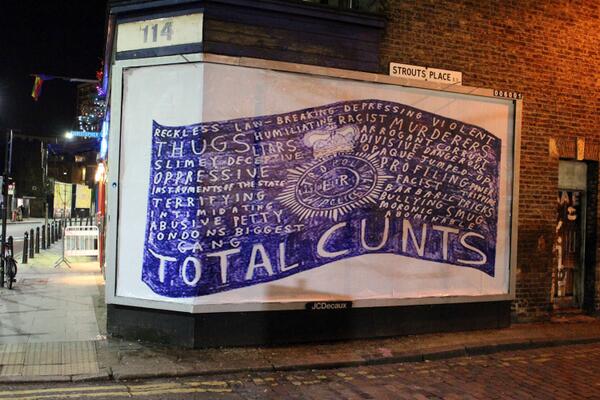 114
STROUTS PLACE E.2
006001
RECKLESS LAW-BREAKING DEPRESSING VIOLENT
THUGS HUMILIATING RACIST MURDERERS
LIARS ARROGANT CORRUPT
SLIMEY DECEPTIVE DIVISIVE DANGEROUS
OPPRESSIVE OPAQUE JUMPED-UP
INSTRUMENTS OF THE STATE PROFILING
TERRIFYING RACIST
INTIMIDATING BARBARIC PRICKS
ABUSIVE PETTY BULLYING SMUG
LONDONS BIGGEST MORONIC
GANG ABOMINABLE
E II R
POLICE
TOTAL CUNTS
JCDecaux
ME